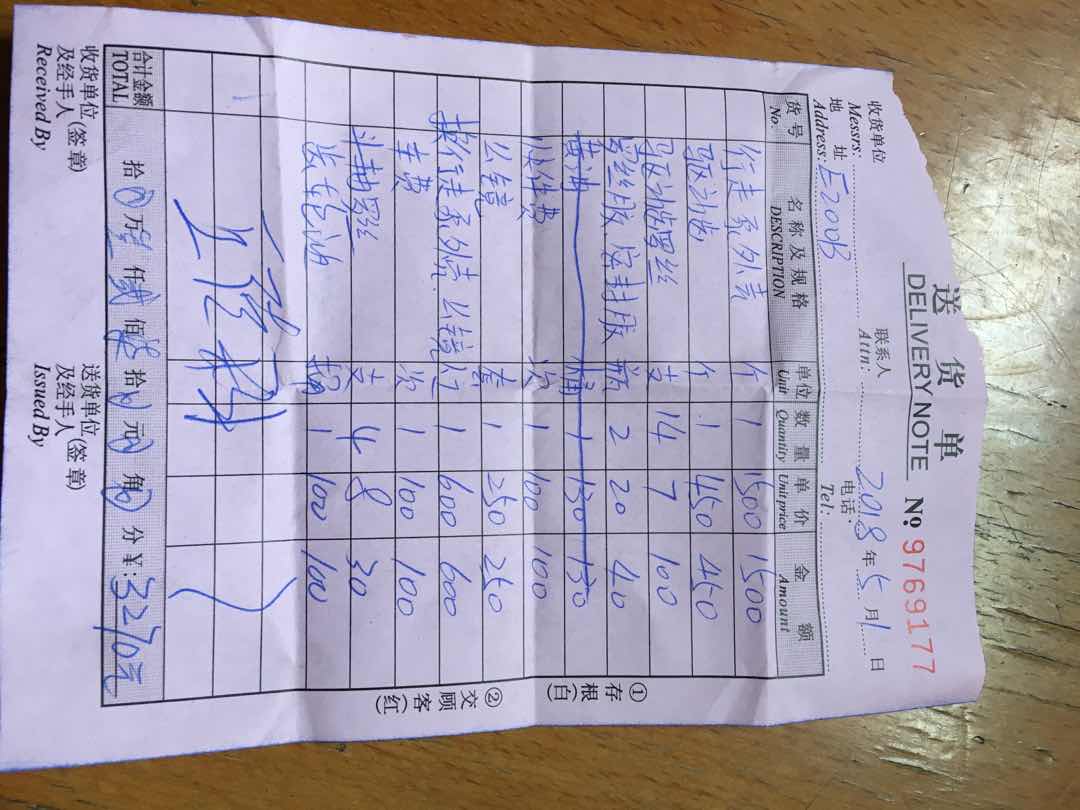 送货单
DELIVERY NOTE
№ 9769177
收货单位
Messrs:
联系人
Attn:
电话:
Tel:
2018年5月1日
地址
Address: E200B
货号 No. 名称及规格 DESCRIPTION 单位 Unit 数量 Quantity 单价 Unit price 金额 Amount
行走系外壳 个 1 1500 1500
驱动齿 个 1 450 450
驱动齿罗丝 支 14 7 100
罗丝胶 密封胶 瓶 2 20 40
黄油 桶 1 130 130
快件费 次 1 100 100
公镜 套 1 250 250
换行走系外壳 公镜 1 600 600
车费 次 1 100 100
斗勒罗丝 支 4 8 30
齿车包油 1 100 100
合计金额 TOTAL 拾 万 仟 贰 佰 拾 元 角 分 ¥: 3270元
收货单位 及经手人(签章)
Received By
送货单位 及经手人(签章)
Issued By
①存根(白)
②交顾客(红)